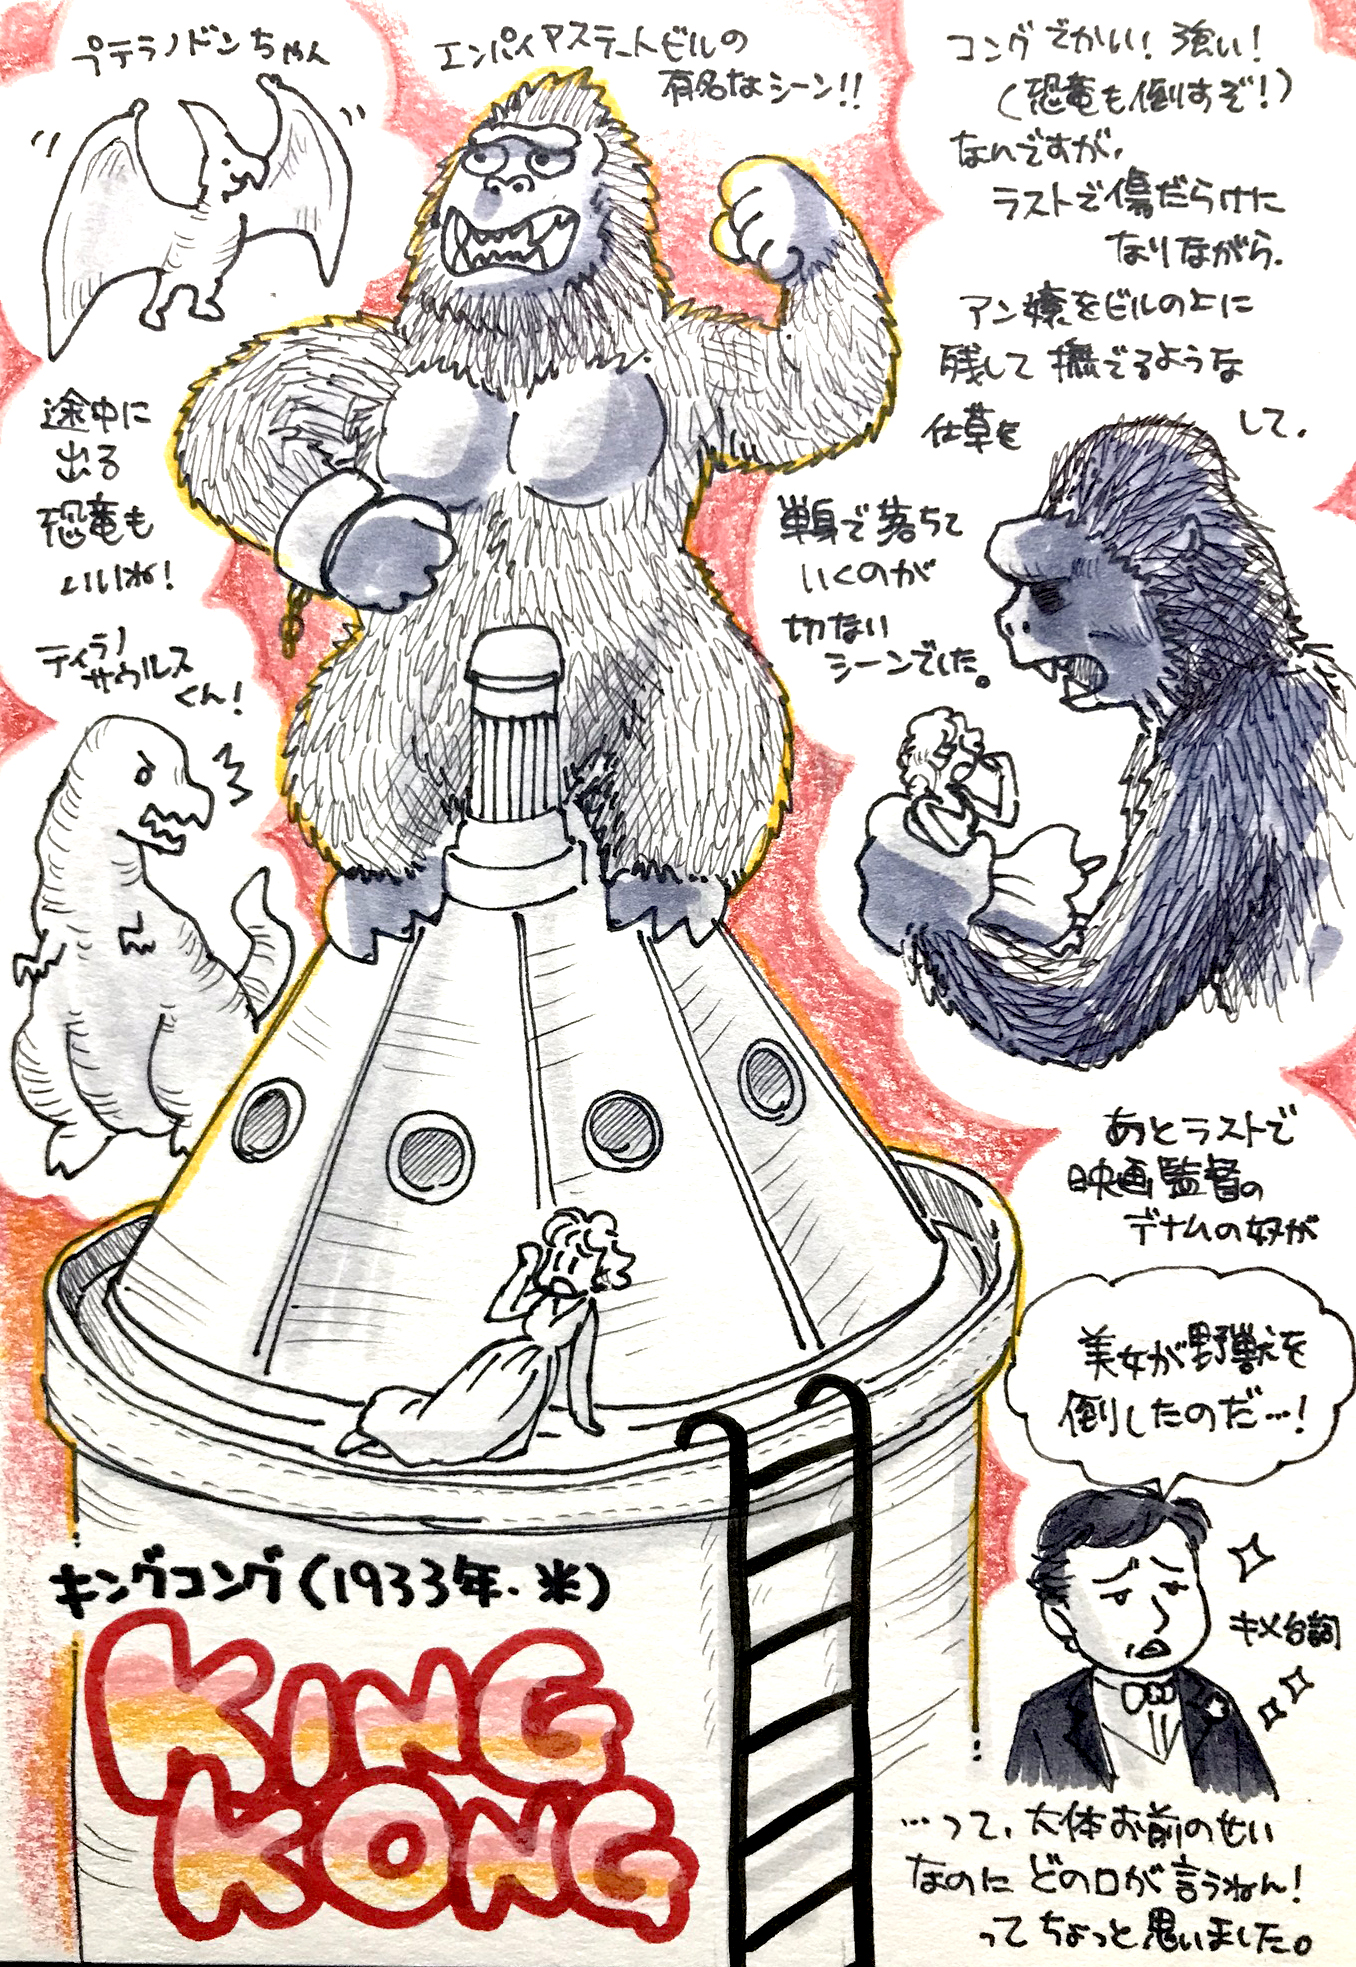 プテラノドンちゃん
エンパイアステートビルの
有名なシーン!!
コングでかい!強い!
(恐竜も倒すぞ!)
なんですが、
ラストで傷だらけに
なりながら、
アン嬢をビルの上に
残して撫でるような
仕草を
して、
単身で落ちて
いくのが
切ない
シーンでした。
途中に
出る
恐竜も
いいね!
ティラノ
サウルス
くん!
あとラストで
映画監督の
デナムの奴が
美女が野獣を
倒したのだ…!
キメ台詞
…って、大体お前のせい
なのにどの口が言うねん!
ってちょっと思いました。
キングコング(1933年・米)
KING
KONG